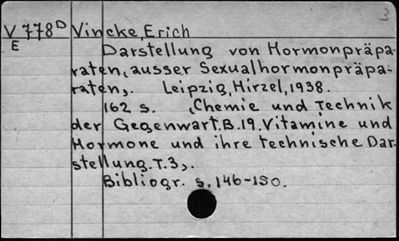 3
V 778 D Vincke, Erich
E Darstellung von Hormonpräpa-
raten, ausser Sexualhormonpräpa-
raten,. Leipzig, Hirzel, 1938.
162 s. (Chemie und Technik
der Gegenwart. B.19. Vitamine und
Hormone und ihre technische Dar-
stellung. T.3,.
Bibliogr. s. 146-150.